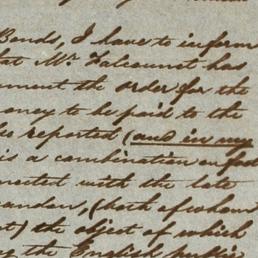 Bends, I have to inform
that Mr Falconnet has
ument the order for the
oney to be paid to the
les reported (and in my
is a combination on foot
nected with the late
anders, (both of whom
at) the object of which
g the English public